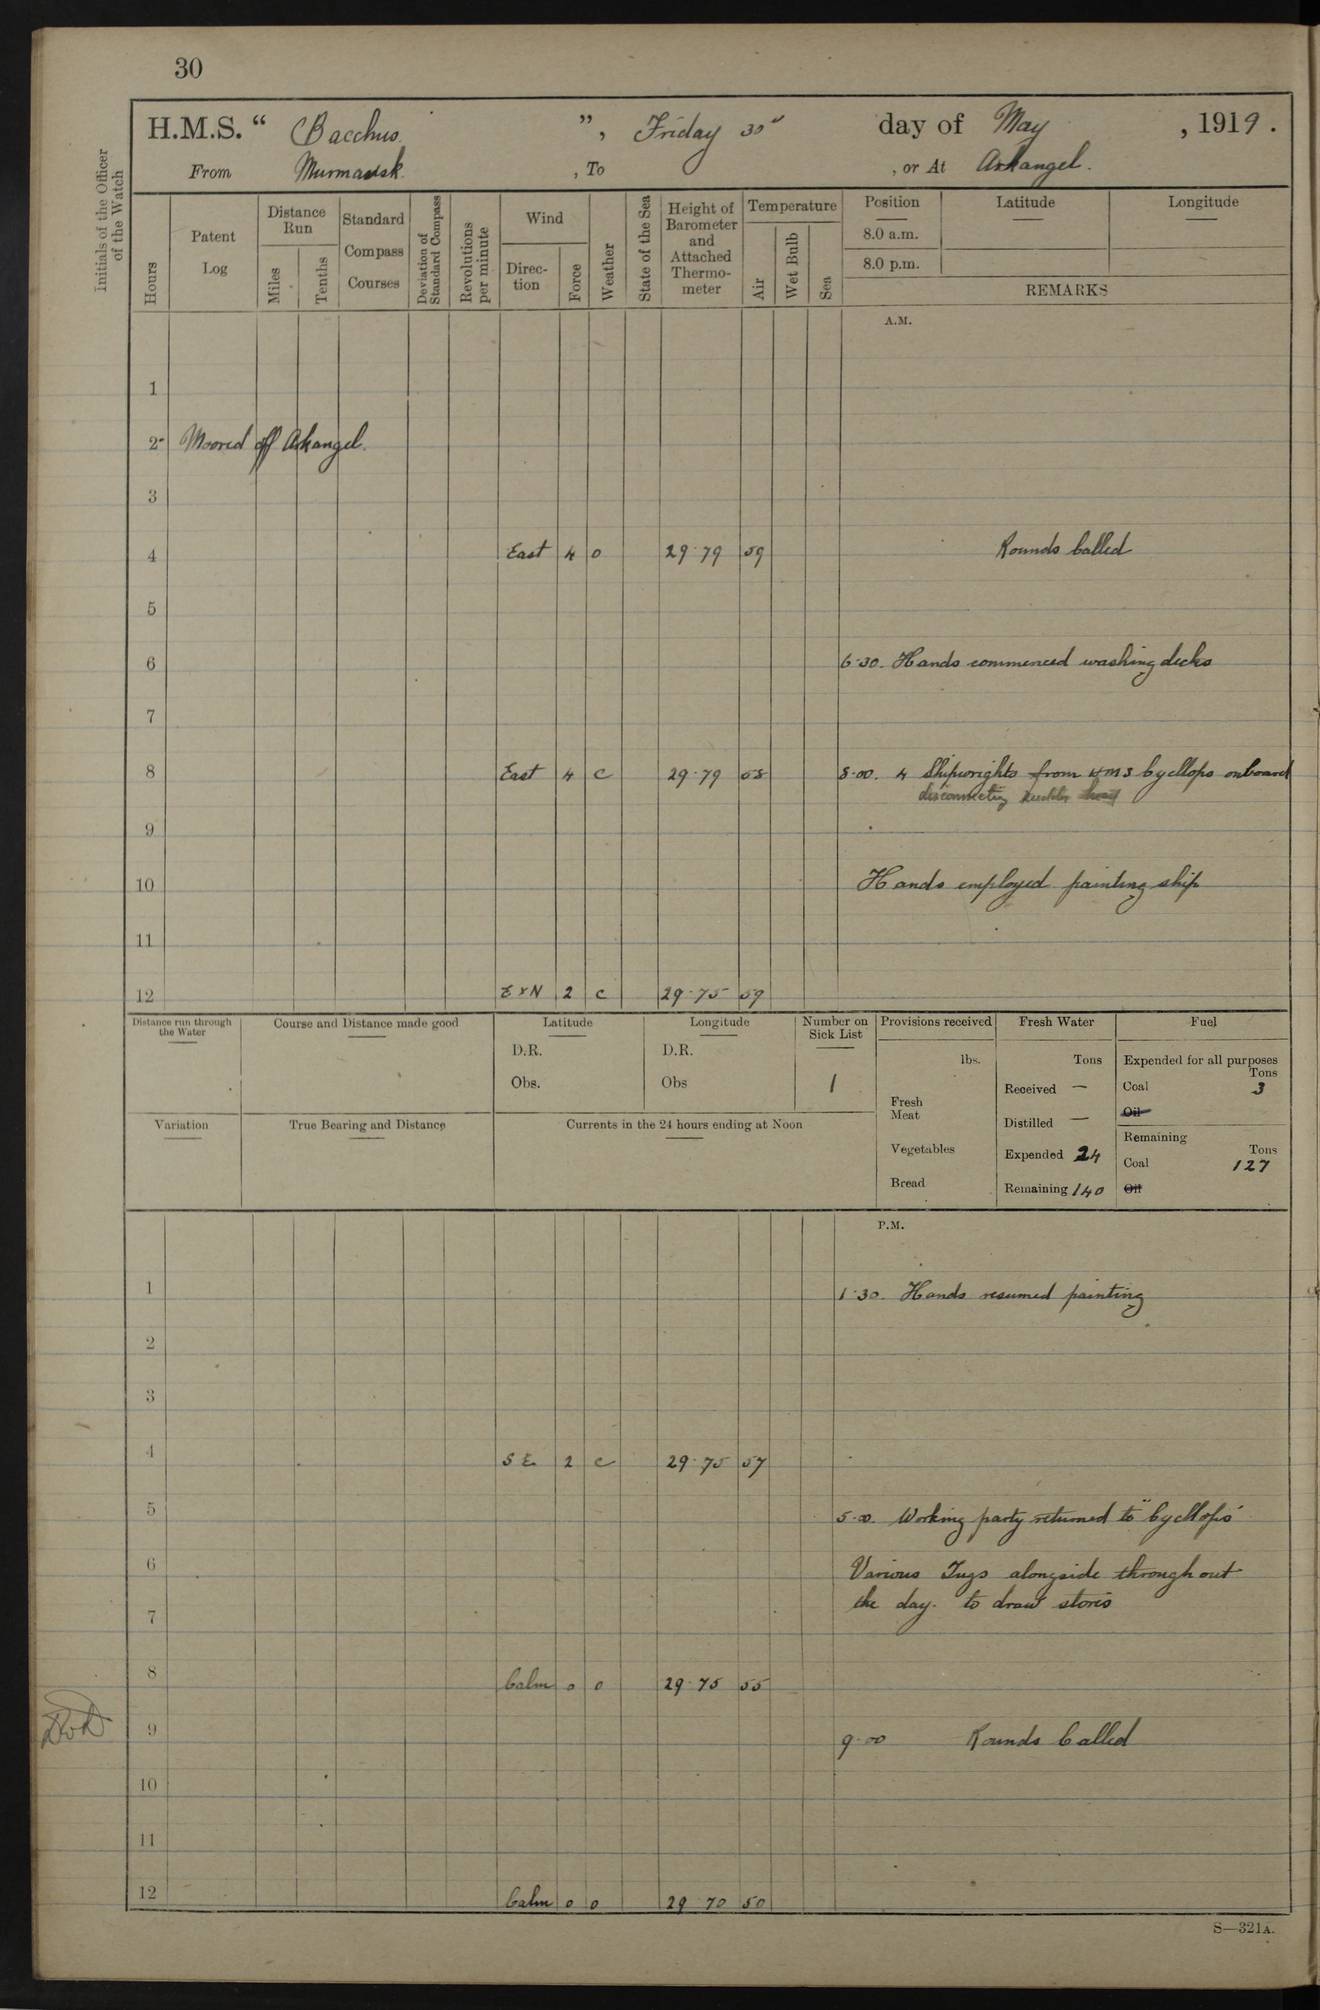 30
H.M.S. “ Bacchus. ”, Friday 30" day of May , 1919.
From Murmansk. , To , or At Arkangel.
Initials of the Officer of the Watch
Hours
Patent Log
Distance Run
Miles
Tenths
Standard Compass Courses
Deviation of Standard Compass
Revolutions per minute
Wind
Direction
Force
Weather
State of the Sea
Height of Barometer and Attached Thermometer
Temperature
Air
Wet Bulb
Sea
Position Latitude Longitude
8.0 a.m.
8.0 p.m.
REMARKS
A.M.
1
2 Moored off Arkangel.
3
4 East 4 o 29·79 59 Rounds Called
5
6 6·30. Hands commenced washing decks
7
8 East 4 c 29·79 58 8·00. 4 Shipwrights from HMS Cycllops onboard
disconnecting
9
10 Hands employed painting ship
11
12 E x N 2 c 29·75 59
Distance run through the Water
Course and Distance made good
Latitude
D.R.
Obs.
Longitude
D.R.
Obs
Number on Sick List
1
Provisions received
lbs.
Fresh Meat
Vegetables
Bread
Fresh Water
Tons
Received —
Distilled —
Expended 24
Remaining 140
Fuel
Expended for all purposes
Tons
Coal 3
Oil
Remaining
Tons
Coal 127
Oil
Variation
True Bearing and Distance
Currents in the 24 hours ending at Noon
P.M.
1 1·30. Hands resumed painting
2
3
4 S E 2 c 29·75 57
5 5·00. Working party returned to "Cycllops"
6 Various Tugs alongside throughout
the day. to draw stores
7
8 Calm 0 o 29·75 55
9 9·00 Rounds Called
10
11
12 Calm 0 o 29 70 50
S—321A.